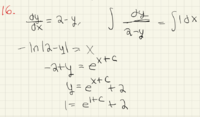 16. dy/dx = 2-y, ∫ dy/2-y = ∫1dx
-ln|2-y| = x
-2+y = e^x+c
y = e^x+c + 2
1 = e^1+c + 2